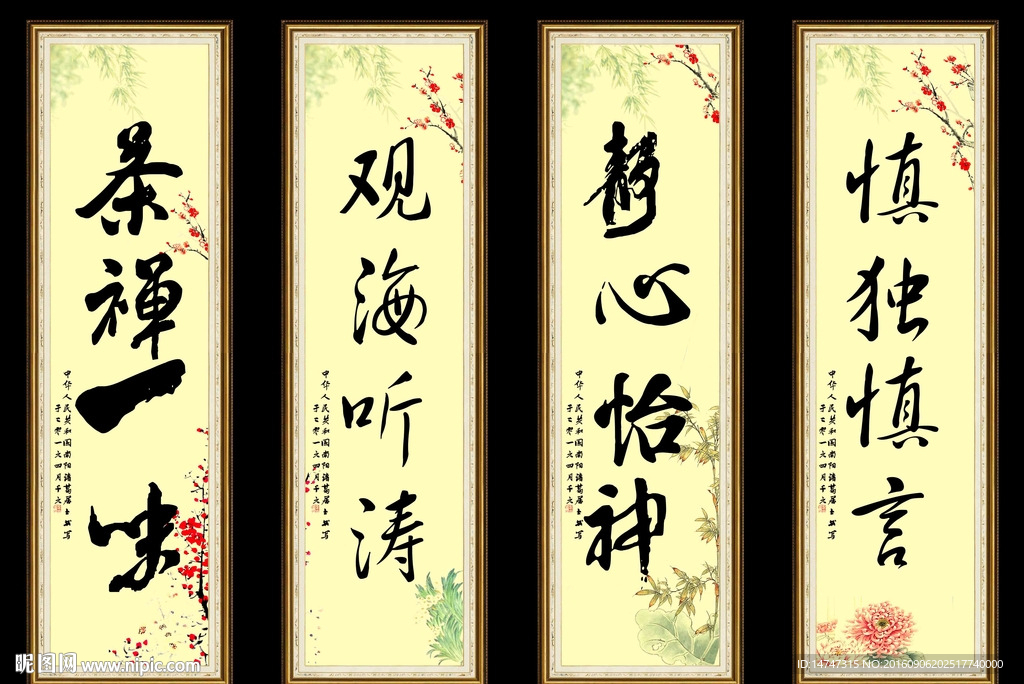 茶禅一味
中华人民共和国南阳诸葛居士书写
于二零一六四月千元
观海听涛
中华人民共和国南阳诸葛居士书写
于二零一六四月千元
静心怡神
中华人民共和国南阳诸葛居士书写
于二零一六四月千元
慎独慎言
中华人民共和国南阳诸葛居士书写
于二零一六四月千元
昵图网 www.nipic.com
ID:14747315 NO:20160906202517740000